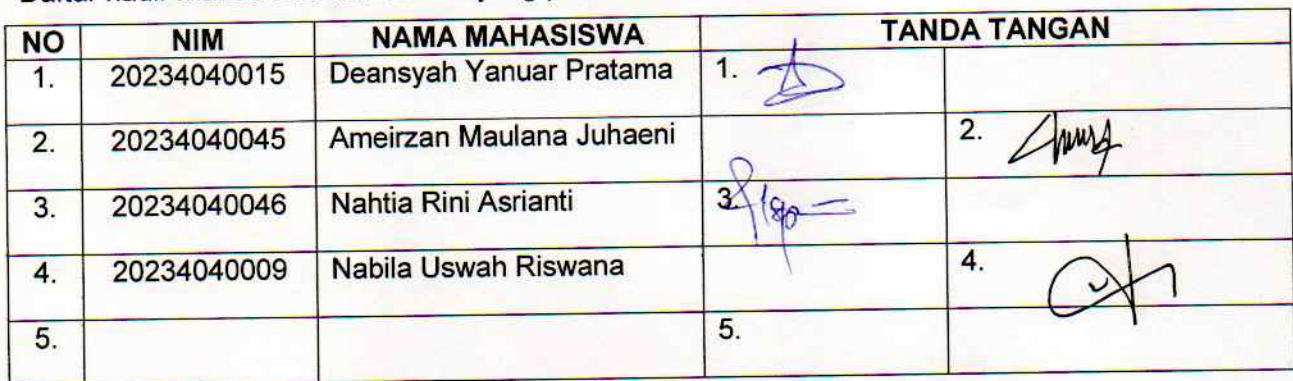 NO NIM NAMA MAHASISWA TANDA TANGAN
1. 20234040015 Deansyah Yanuar Pratama 1.
2. 20234040045 Ameirzan Maulana Juhaeni 2.
3. 20234040046 Nahtia Rini Asrianti 3.
4. 20234040009 Nabila Uswah Riswana 4.
5. 5.